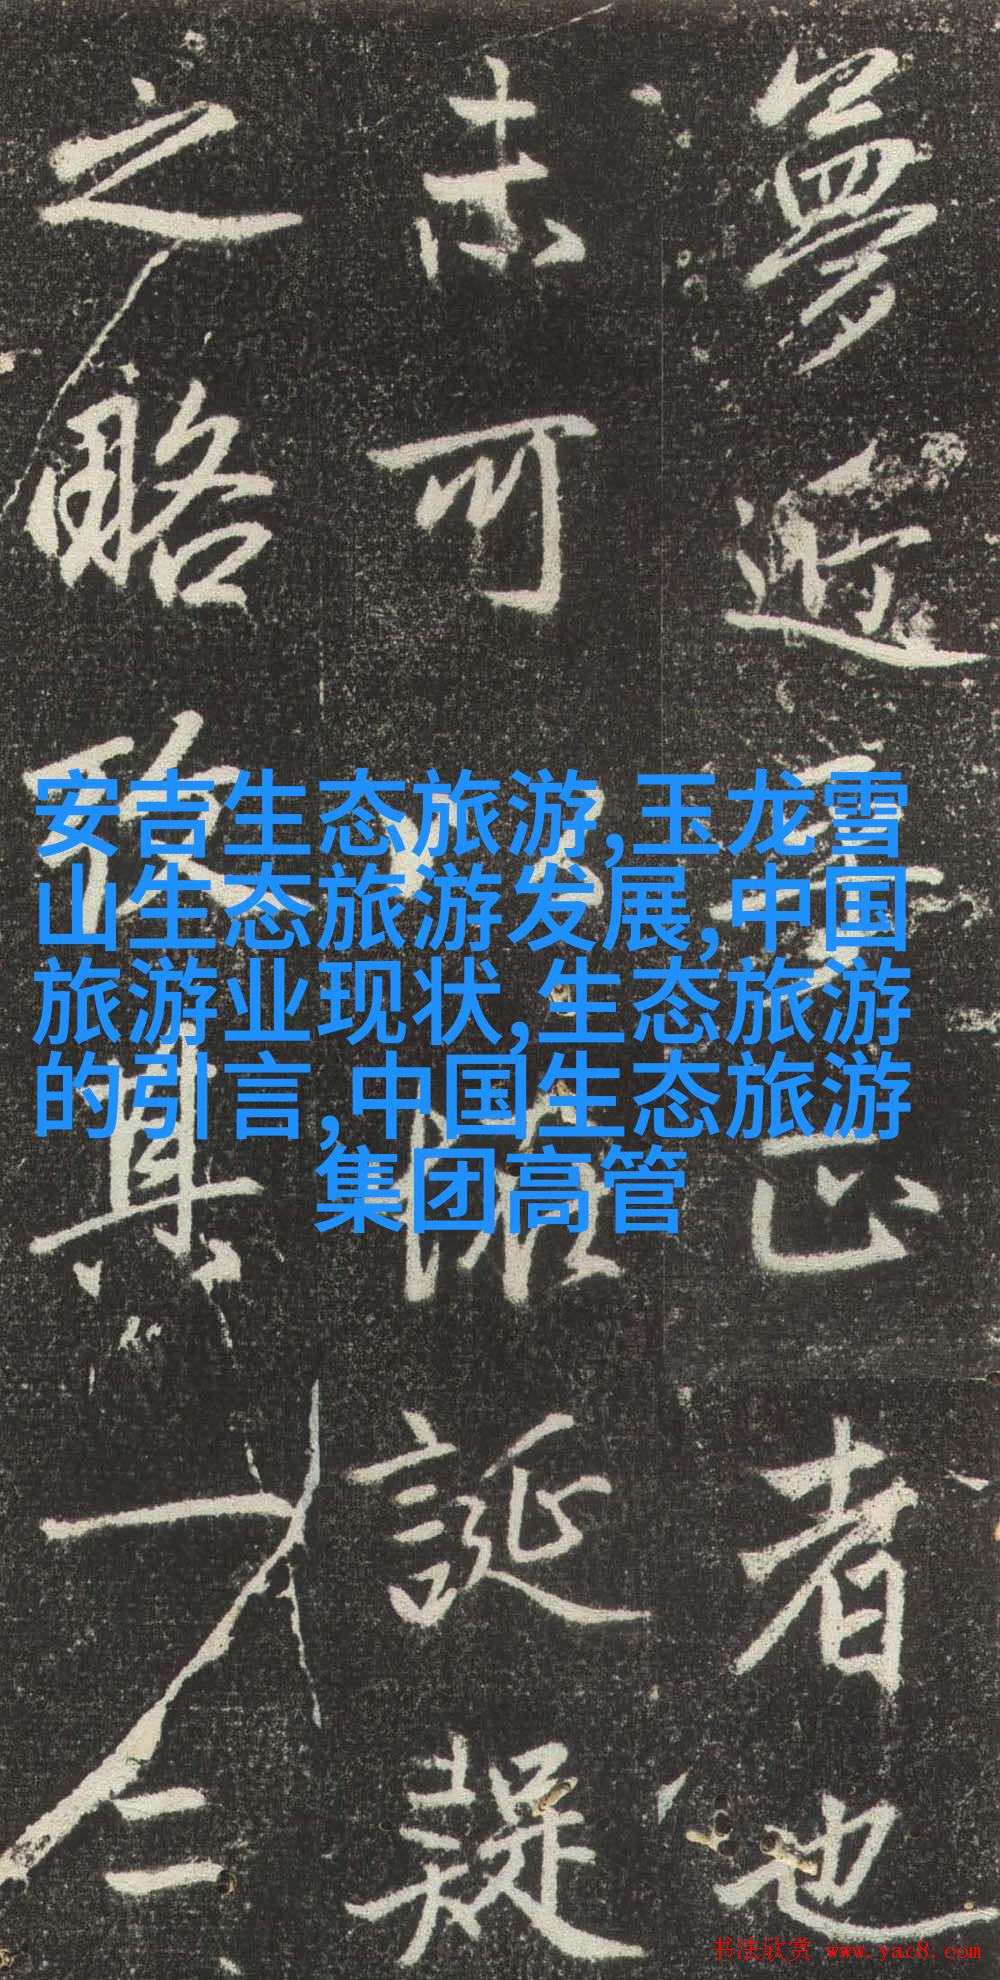 夢近正者也
可誕疑
之略一二
安吉生态旅游,玉龙雪
山生态旅游发展,中国
旅游业现状,生态旅游
的引言,中国生态旅游
集团高管
书法欣赏 www.yac8.com